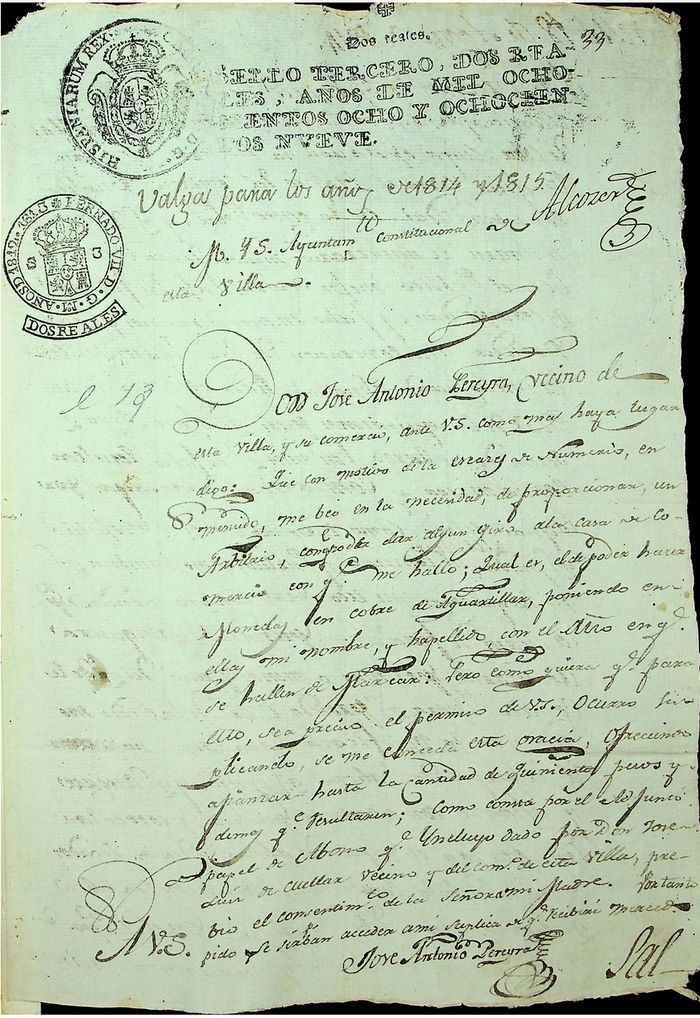 Dos reales.
33
HISPANIARUM REX
SELLO TERCERO, DOS REA-
LES, AÑOS DE MIL OCHO-
CIENTOS OCHO Y OCHOCIEN-
TOS NUEVE.
Valga para los años de 1814 y 1815
Alcozer
FERNADO VII D. G.
AÑOSD 1812 Y 1813
S 3
DOSREALES
M. Y S. Ayuntamto Constitucional de
esta Villa.
Don Jose Antonio Pereyra, vecino de
esta Villa, y su comercio, ante V.S. como mas haya lugar
digo: Que con motivo de la escases de Numerio, en
menudo, me beo en la necesidad, de proporcionar, un
Arbitrio, conq.e poder dar algun giro ala casa de Co-
mercio con q.e me hallo; Qual es, el de poder hacer
Monedas en cobre de Aquartillas, poniendo en
ellas mi nombre, y hapellido, con el Año en q.e
se hallen de Marcar: Pero como quiera q.e para
ello, sea preciso el permiso de V.S., Ocurro su-
plicando, se me conceda esta gracia, ofreciendo
afianzar hasta la cantidad de quinientos pesos y
demas q.e resultaren; como consta por el Adjunto
papel de Abono q.e Yncluyo dado por Don Jose
Luis de Cuellar Vecino y del com.o de esta Villa, pre-
vio el consentim.to de la Señora mi Madre. Portanto
A V.S. pido se sirban acceder a mi suplica de q.e recibiré merced.
Jose Antonio Pereyra
Sal